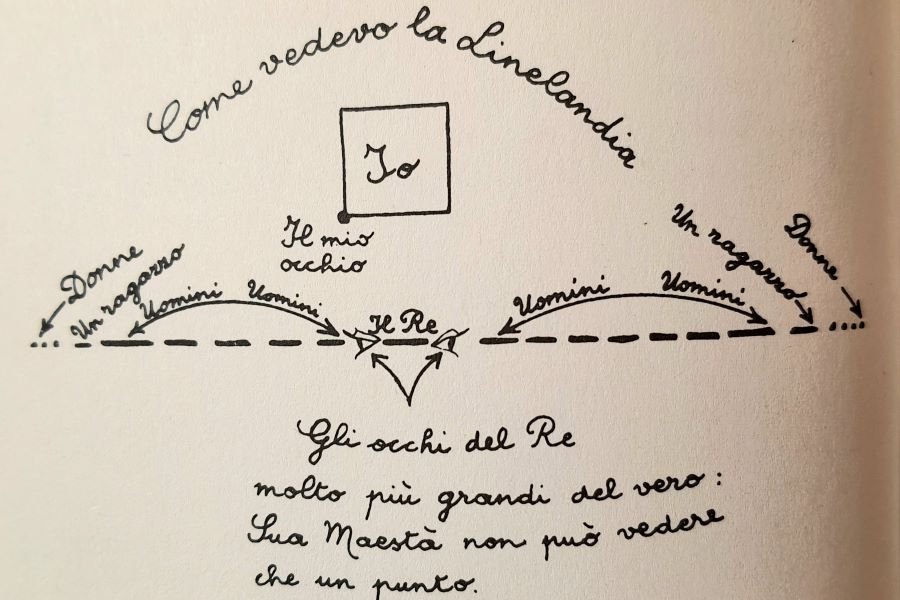 Come vedevo la Linelandia
Io
Il mio
occhio
Donne
Un ragazzo
Uomini
Uomini
Il Re
Uomini
Uomini
Un ragazzo
Donne
Gli occhi del Re
molto più grandi del vero:
Sua Maestà non può vedere
che un punto.